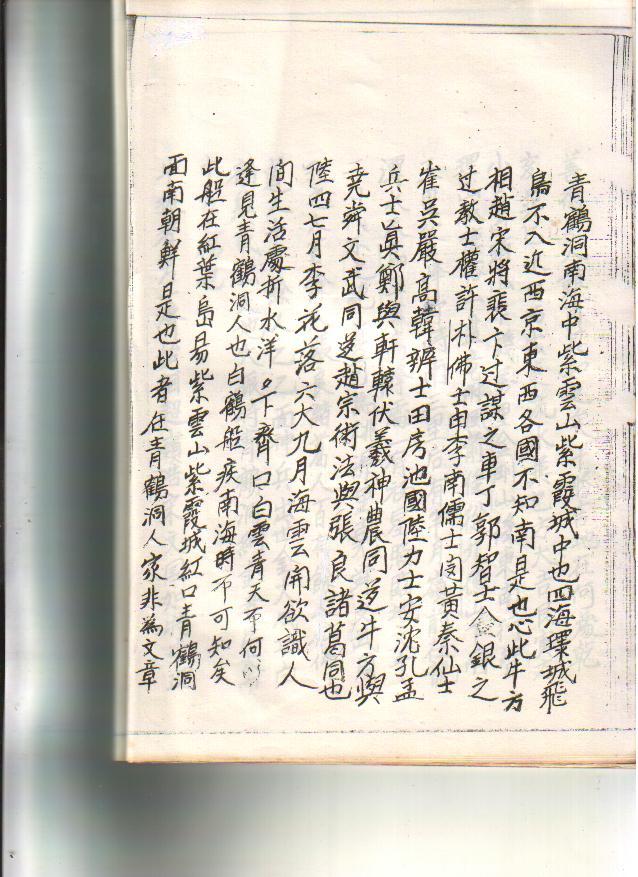 青鶴洞南海中紫雲山紫霞城中也四海環城飛
鳥不入近西京東西各國不知南是也心此牛方
相趙宋將裵卞过謀之車丁郭智士金銀之
过教士權許朴佛士申李南儒士閔黃秦仙士
崔吳嚴高韓辨士田房池國陸力士安沈孔孟
兵士眞鄭與軒轅伏羲神農同道牛方與
堯舜文武同道趙宗術法與張良諸葛同也
陸四七月李花落六大九月海雲開欲識人
间生活處折水洋。下齊口白雲青天不何
逢見青鶴洞人也白鶴般疾南海時不可知矣
此般在紅葉島易紫雲山紫霞城紅口青鶴洞
面南朝鮮是也此者在青鶴洞人家非為文章